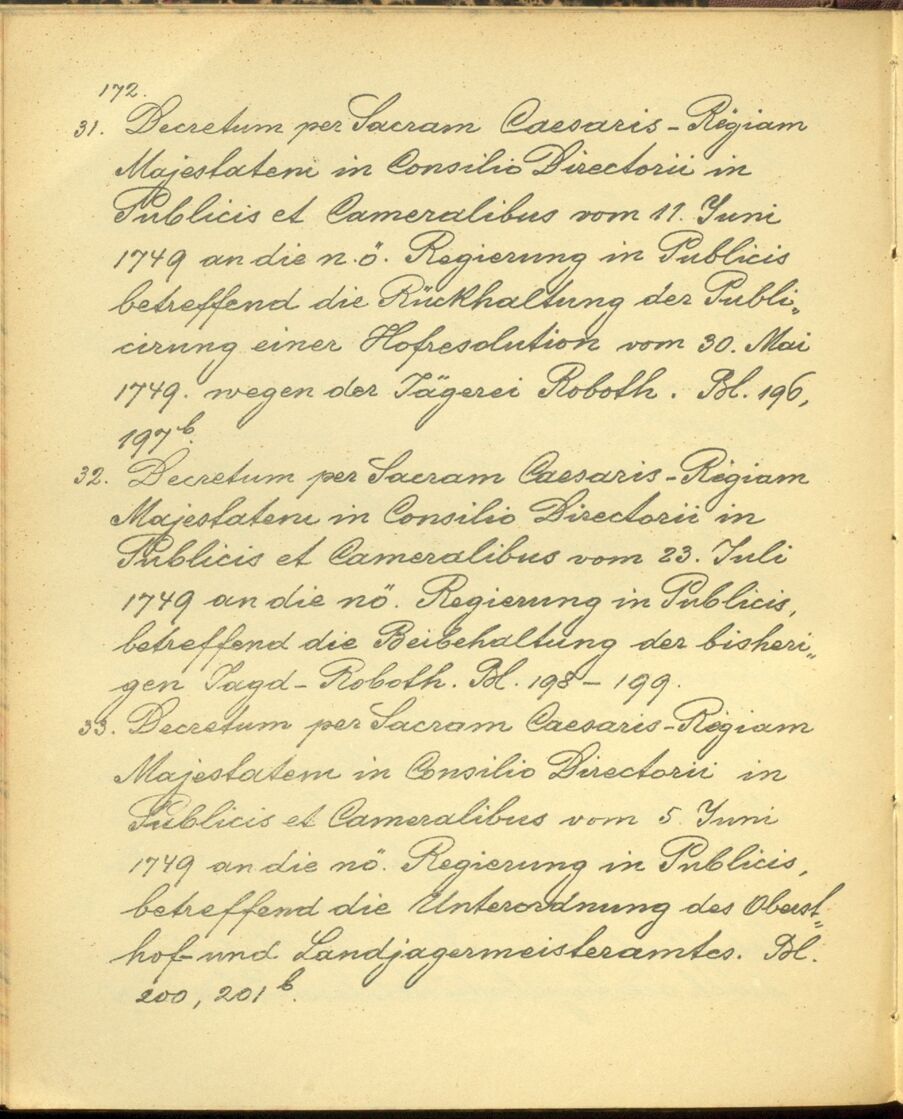 172.
31. Decretum per Sacram Caesaris-Regiam
Majestatem in Consilio Directorii in
Publicis et Cameralibus vom 11. Juni
1749 an die n.ö. Regierung in Publicis
betreffend die Rückhaltung der Publi„
cirung einer Hofresolution vom 30. Mai
1749. wegen der Jägerei Roboth. Bl. 196,
197b.
32. Decretum per Sacram Caesaris-Regiam
Majestatem in Consilio Directorii in
Publicis et Cameralibus vom 23. Juli
1749 an die nö. Regierung in Publicis,
betreffend die Beibehaltung der bisheri„
gen Jagd-Roboth. Bl. 198-199.
33. Decretum per Sacram Caesaris-Regiam
Majestatem in Consilio Directorii in
Publicis et Cameralibus vom 5. Juni
1749 an die nö. Regierung in Publicis,
betreffend die Unterordnung des Oberst=
hof- und Landjagermeisteramtes. Bl.
200, 201b.